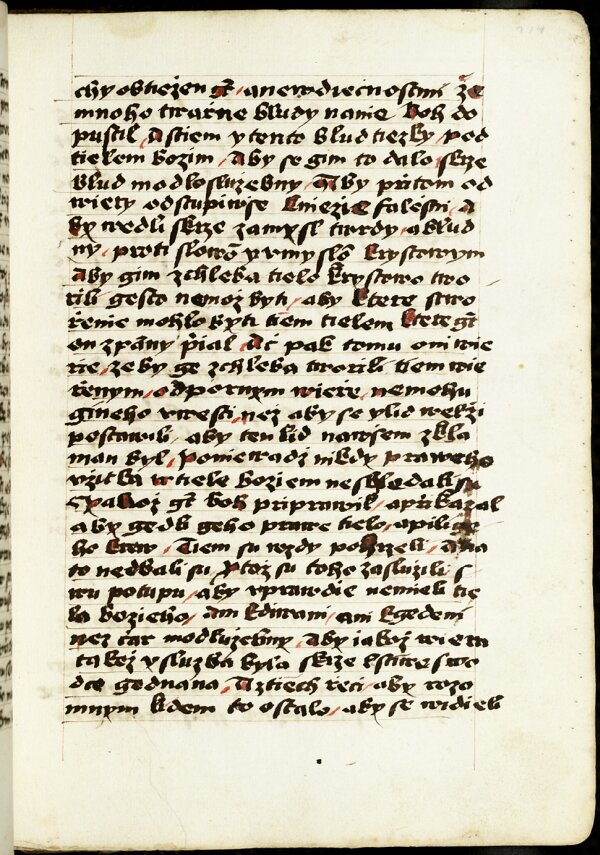 chy obtiezen gt anewdiecnostmi ze
mnoho twarne bludy nanie boh do
pustil Astiem ytento blud tiezky pod
tielem bozim Aby se gim to dalo skrze
blud modloslużebny Aby pritom od
wiery odstupiwse kniezie falesni A
by wedli skrze zamysl twrdy abłud
ny proti slowó yvmyslo krystowym
Aby gim zchleba tielo krystowo two
rili gesto nemoz byti aby ktere stwo
renie mohlo byti tiem tielem ktere gt
on zpany pial Ac pak tomu oni wie
rie zeby ge zchleba tworili tiem wie
renym odpornym wiere nemohu
gineho vwesti nez aby se ylid wekzi
postawili aby ten lid nawsem zkla
man byl Poniewadz nikdy praweho
vzitka vtiele boziem neshledali su
gt boh priprawil aprikazal
aby gedli geho prawe tielo apili
ho krew Tiem su wzdy pohrzeli Ana
to nedbali su ytoz su toho zaslużili s
wu potupu aby vprawdie nemieli tie
la bozieho Ani kdiwani ani kgedeni
nez car modlużebny Aby iakoz wiera
takez ysluzba byla skrze lstiwe swo
dce godnana Aztiech reci aby rozo
mnym lidem to ostalo aby se widieli